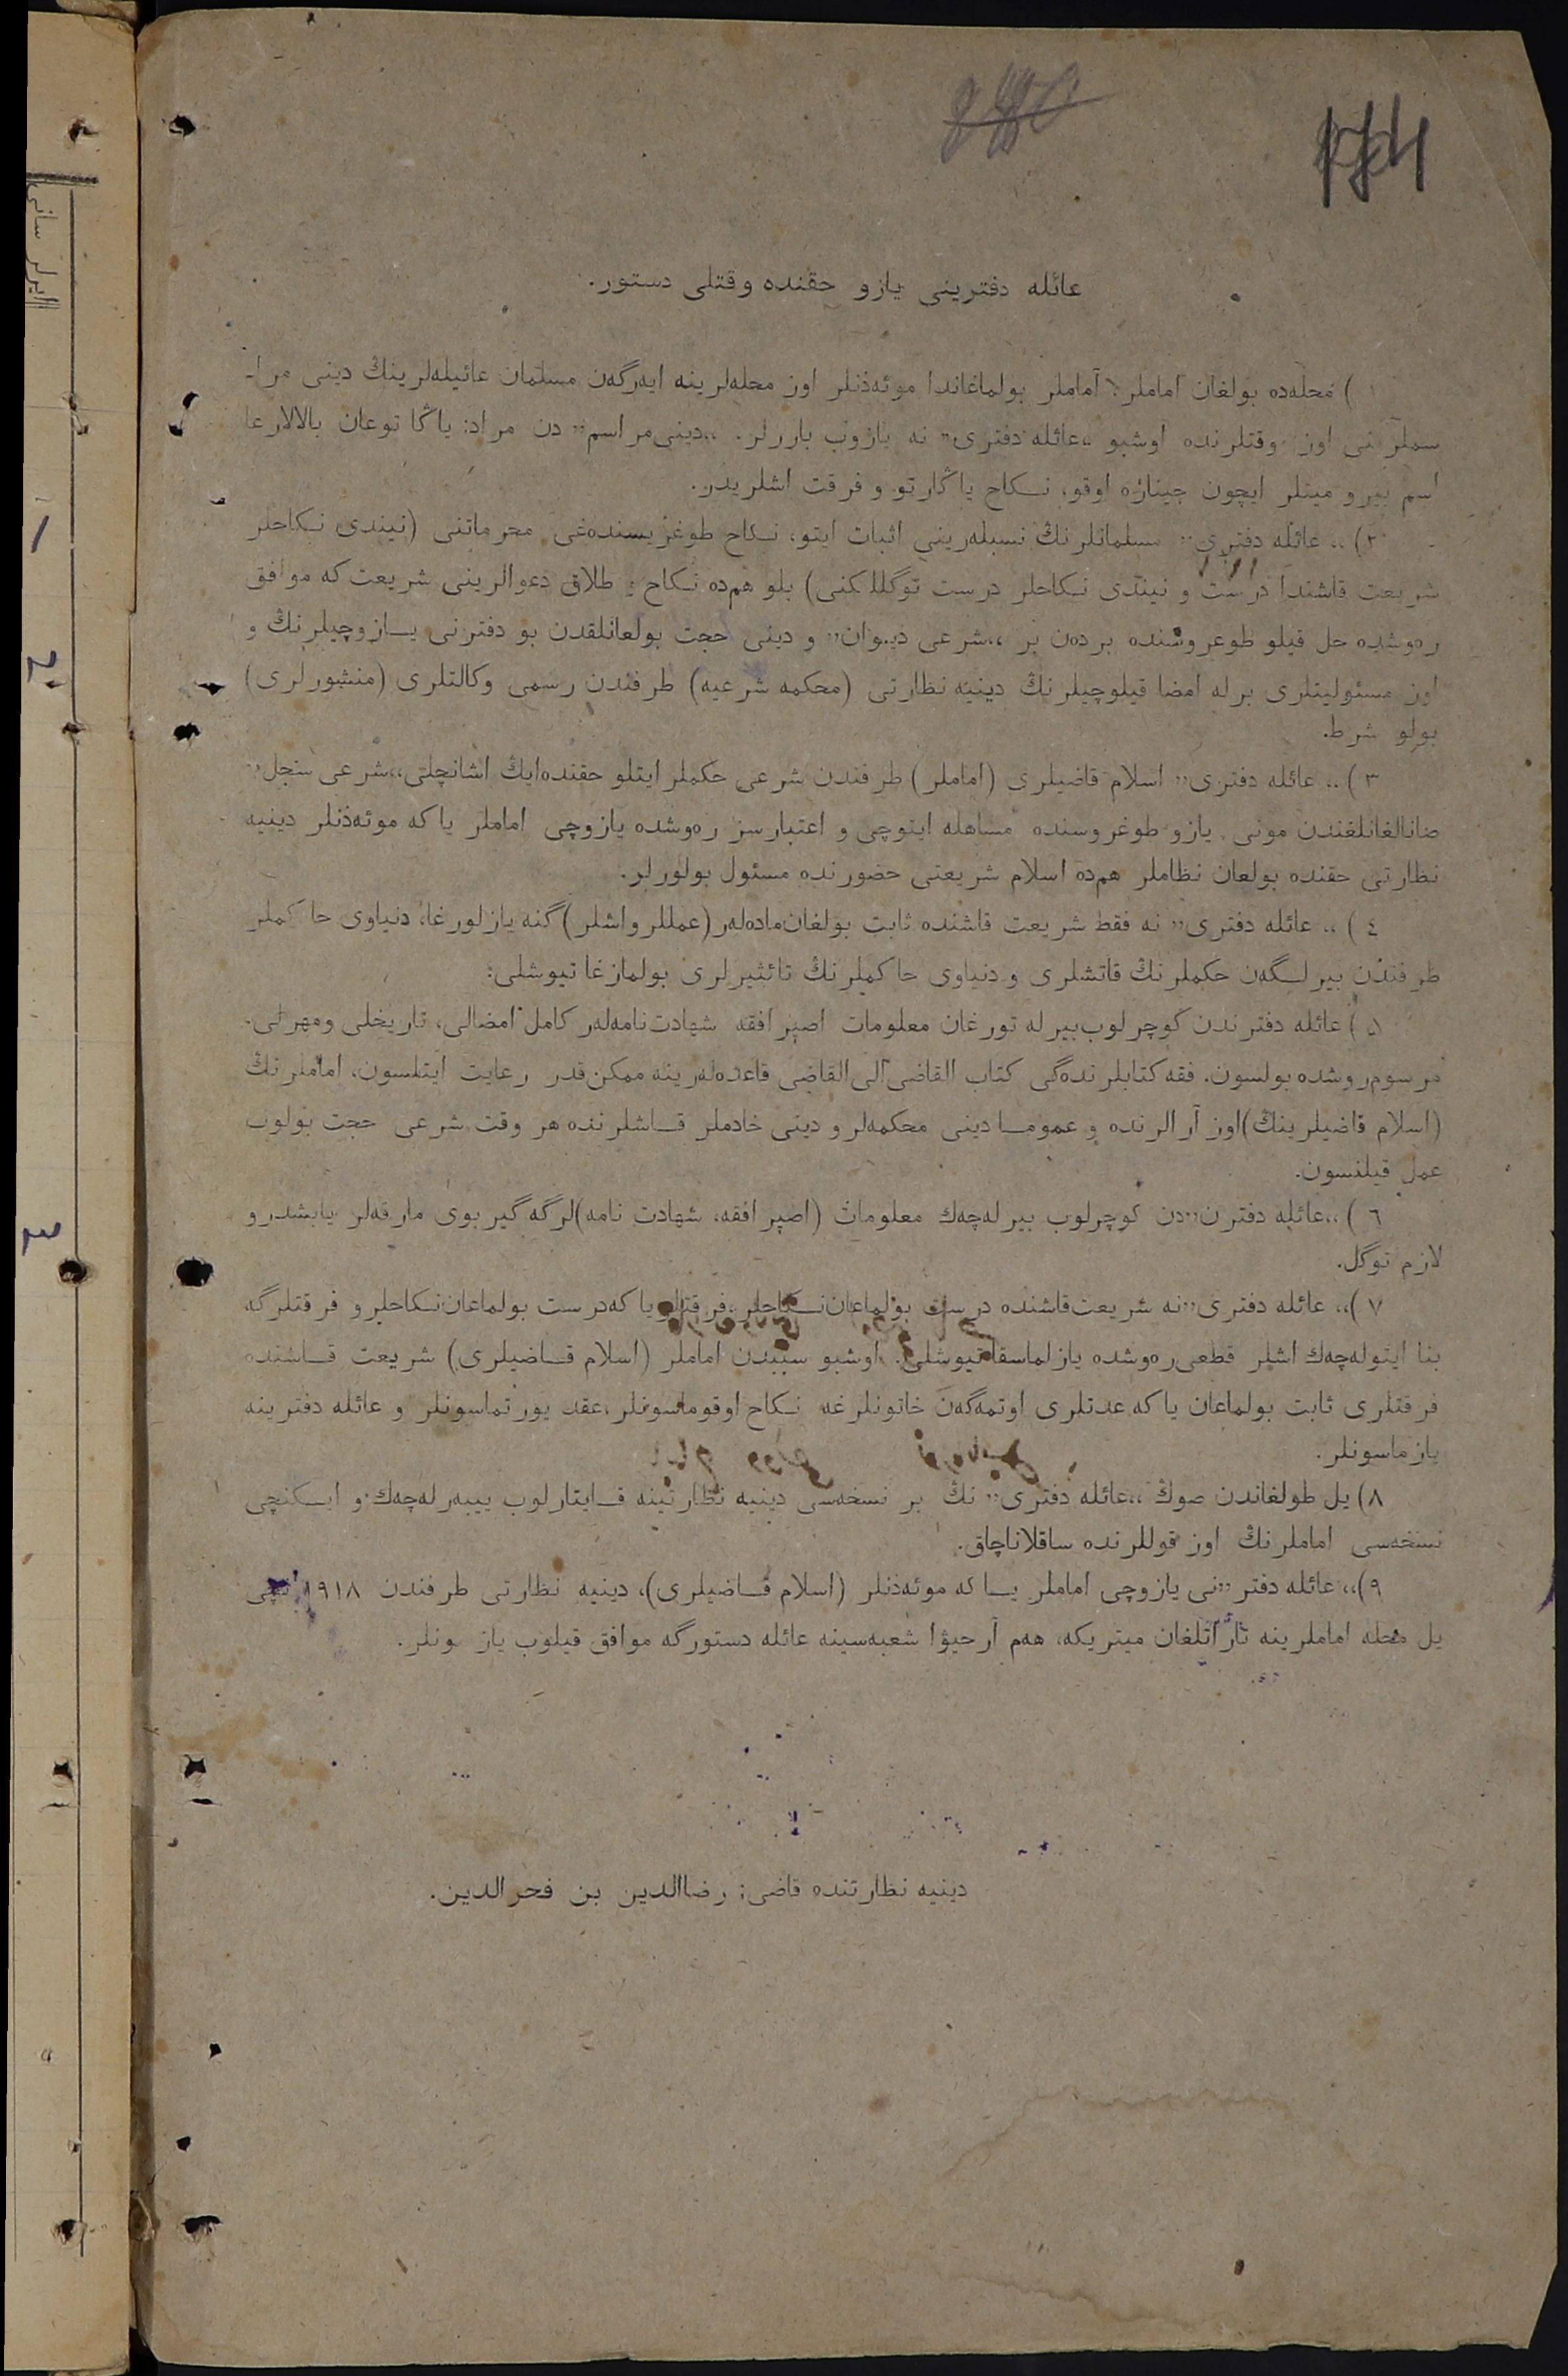 عائله دفترینی یازو حقنده وقتلی دستور.
۱) محله‌ده بولغان اماملر، آماملر بولماغاندا موئه‌ذنلر اوز محله‌لرینه ایه‌رگه‌ن مسلمان عائیله‌لرینڭ دینی مرا-
سملرینی اوز وقتلرنده اوشبو „عائله دفتری” نه یازوب باررلر. „دینی مراسم” دن مراد: یاڭا توعان بالالارعا
اسم بیرو میتلر ایچون جینازه اوقو، نـکاح یاڭارتو و فرقت اشلریدر.
۲) „ عائله دفتری” مسلمانلرنڭ نسبله‌رینی اثبات ایتو، نـکاح طوغریسنده‌غی محرماتنی (نیندی نـکاحلر
شریعت قاشندا درست و نیندی نـکاحلر درست توگللکنی) بلو هم‌ده نـکاح و طلاق دعوالرینی شریعت‌که موافق
ره‌وشده حل قیلو طوعروسنده بردن بر „شرعی دیوان” و دینی حجت بولعانلقدن بو دفترنی یـازوچیلرنڭ و
اوز مسئولیتلری برله امضا قیلوچیلرنڭ دینیه نظارتی (محکمه شرعیه) طرفندن رسمی وکالتلری (منشورلری)
بولو شرط.
۳) „ عائله دفتری” اسلام قاضیلری (اماملر) طرفندن شرعی حکملر ایتلو حقنده ایڭ اشانچلی „شرعی سجل”
صانالغانلغندن مونی یازو طوغروسنده مساهله ایتوچی و اعتبارسز ره‌وشده یازوچی اماملر یا که موئه‌ذنلر دینیه
نظارتی حقنده بولعان نظاملر هم‌ده اسلام شریعتی حضورنده مسئول بولورلر.
٤) „ عائله دفتری” نه فقط شریعت قاشنده ثابت بولغان ماده‌لەر (عمللر و اشلر) گنه یازلورغا، دنیاوی حاکملر
طرفندن بیرلـگه‌ن حکملرنڭ قاتشلری و دنیاوی حاکملرنڭ تائثیرلری بولمازغا تیوشلی؛
٥) عائله دفترندن کوچرلوب بیرله تورغان معلومات اصپرافقه شهادت‌نامه‌لەر کامل امضالی، تاریخلی ومهرلی.
مرسوم روشده بولسون. فقه کتابلرنده‌گی کتاب القاضی الی القاضی قاعده‌له‌رینه ممکن قدر رعایت ایتلسون، اماملرنڭ
(اسلام قاضیلرینڭ) اوز آرالرنده و عمومـا دینی محکمه‌لر و دینی خادملر قـاشلرنده هر وقت شرعی حجت بولوب
عمل قیلنسون.
٦) „عائله دفترن”دن کوچرلوب بیرله‌چه‌ك معلومات (اصپرافقه، شهادت نامه) لرگه گیربوی مارقه‌لر یابشدرو
لازم توگل.
۷) „ عائله دفتری” نه شریعت قاشنده درست بولماعان نـکاحلر، فرقتلر یا که درست بولماعان نـکاحلر و فرقتلرگه
بنا ایتوله‌چه‌ك اشلر قطعی ره‌وشده یازلماسقا تیوشلی. اوشبو سببدن اماملر (اسلام قـاضیلری) شریعت قـاشنده
فرقتلری ثابت بولماعان یا که عدتلری اوتمه‌گه‌ن خاتونلرغه نـکاح اوقوماسونلر، عقد یورتماسونلر و عائله دفترینه
یازماسونلر.
۸) یل طولغاندن صوڭ „عائله دفتری” نڭ بر نسخه‌سی دینیه نظارتینه قـایتارلوب ییبه‌رله‌چه‌ك و ایـکنچی
نسخه‌سی اماملرنڭ اوز قوللرنده ساقلاناچاق.
۹) „ عائله دفتر” نی یازوچی اماملر یـا که موئه‌ذنلر (اسلام قـاضیلری)، دینیه نظارتی طرفندن ۱۹۱۸ نچی
یل محله اماملرینه تاراتلغان میتریکه، هه‌م آرحیوا شعبه‌سینه عائله دستورگه موافق قیلوب یازسونلر.
دینیه نظارتنده قاضی: رضاالدین بن فخرالدین.